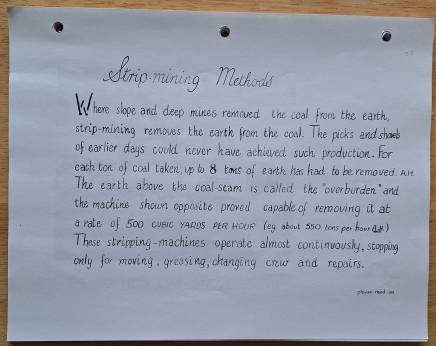 Strip-mining Methods
Where slope and deep mines removed the coal from the earth,
strip-mining removes the earth from the coal. The picks and shovels
of earlier days could never have achieved such production. For
each ton of coal taken, up to 8 tons of earth has had to be removed. A.H.
The earth above the coal-seam is called the "overburden" and
the machine shown opposite proved capable of removing it at
a rate of 500 CUBIC YARDS PER HOUR (eg. about 550 tons per hour
These stripping-machines operate almost continuously, stopping
only for moving, greasing, changing crew and repairs.
please read on